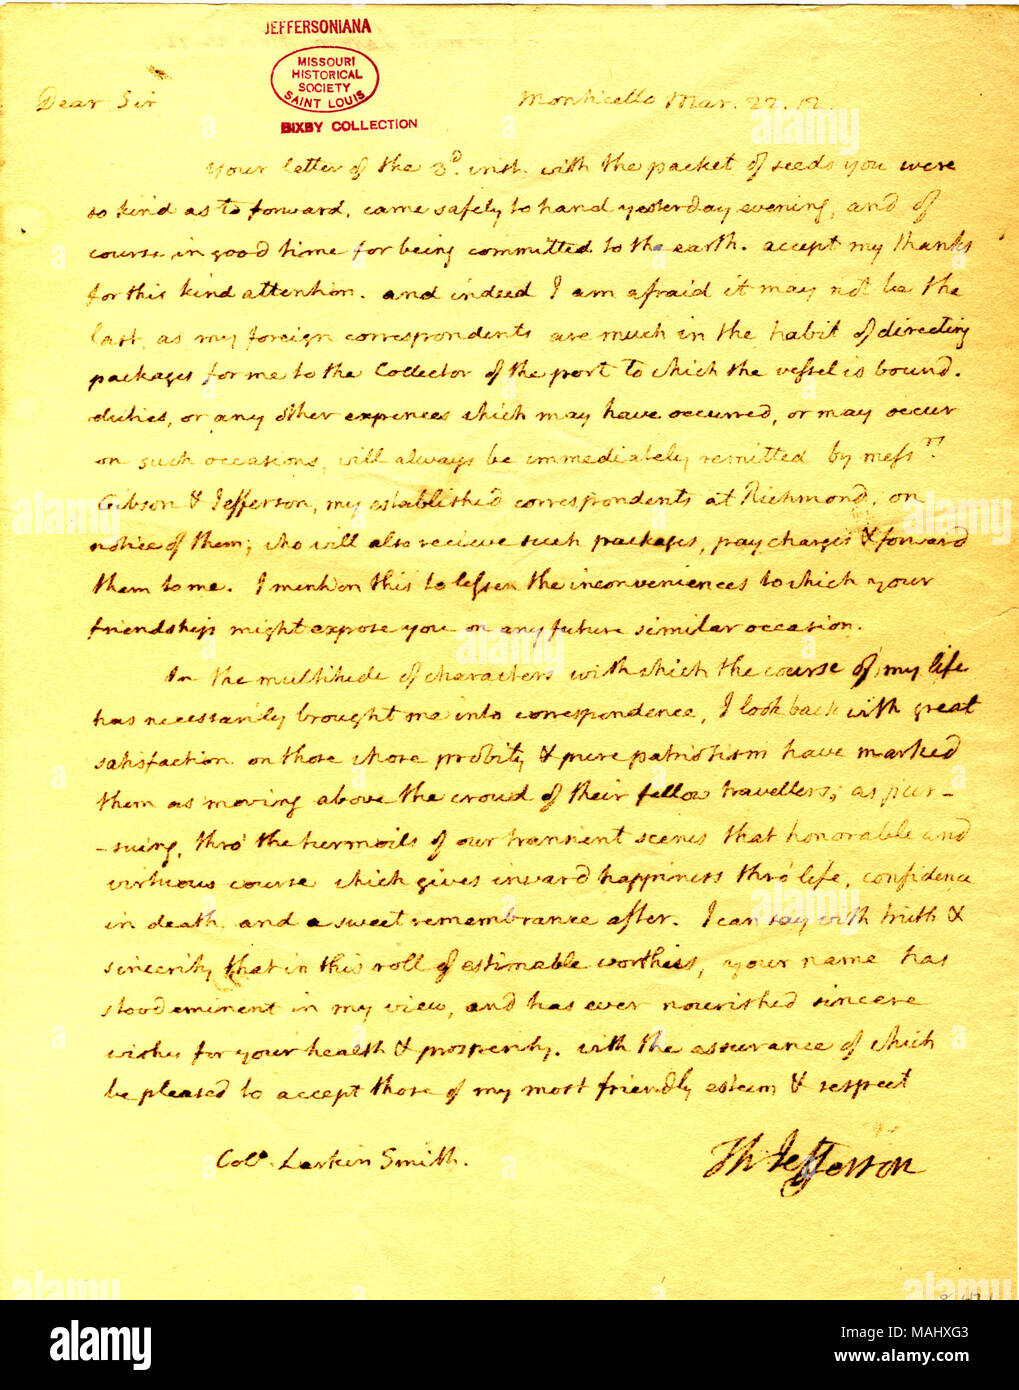 JEFFERSONIANA
MISSOURI
HISTORICAL
SOCIETY
SAINT LOUIS
BIXBY COLLECTION
Dear Sir Monticello Mar. 22. 12.
Your letter of the 3d. inst. with the packet of seeds you were
so kind as to forward, came safely to hand yesterday evening, and of
course in good time for being committed to the earth. accept my thanks
for this kind attention. and indeed I am afraid it may not be the
last, as my foreign correspondents are much in the habit of directing
packages for me to the Collector of the port to which the vessel is bound.
duties, or any other expences which may have occurred, or may occur
on such occasions, will always be immediately remitted by messrs.
Gibson & Jefferson, my established correspondents at Richmond, on
notice of them; who will also recieve such packages, pay charges & forward
them to me. I mention this to lessen the inconveniences to which your
friendship might expose you on any future similar occasion.
In the multitude of characters with which the course of my life
has necessarily brought me into correspondence, I look back with great
satisfaction on those whose probity & pure patriotism have marked
them as moving above the croud of their fellow travellers; as pur-
-suing, thro' the turmoils of our transient scenes that honorable and
virtuous course which gives inward happiness thro' life, confidence
in death, and a sweet remembrance after. I can say with truth &
sincerity that in this roll of estimable worthies, your name has
stood eminent in my view, and has ever nourished sincere
wishes for your health & prosperity. with the assurance of which
be pleased to accept those of my most friendly esteem & respect
Colo. Larkin Smith. Th Jefferson
alamy
Image ID: MAHXG3
www.alamy.com